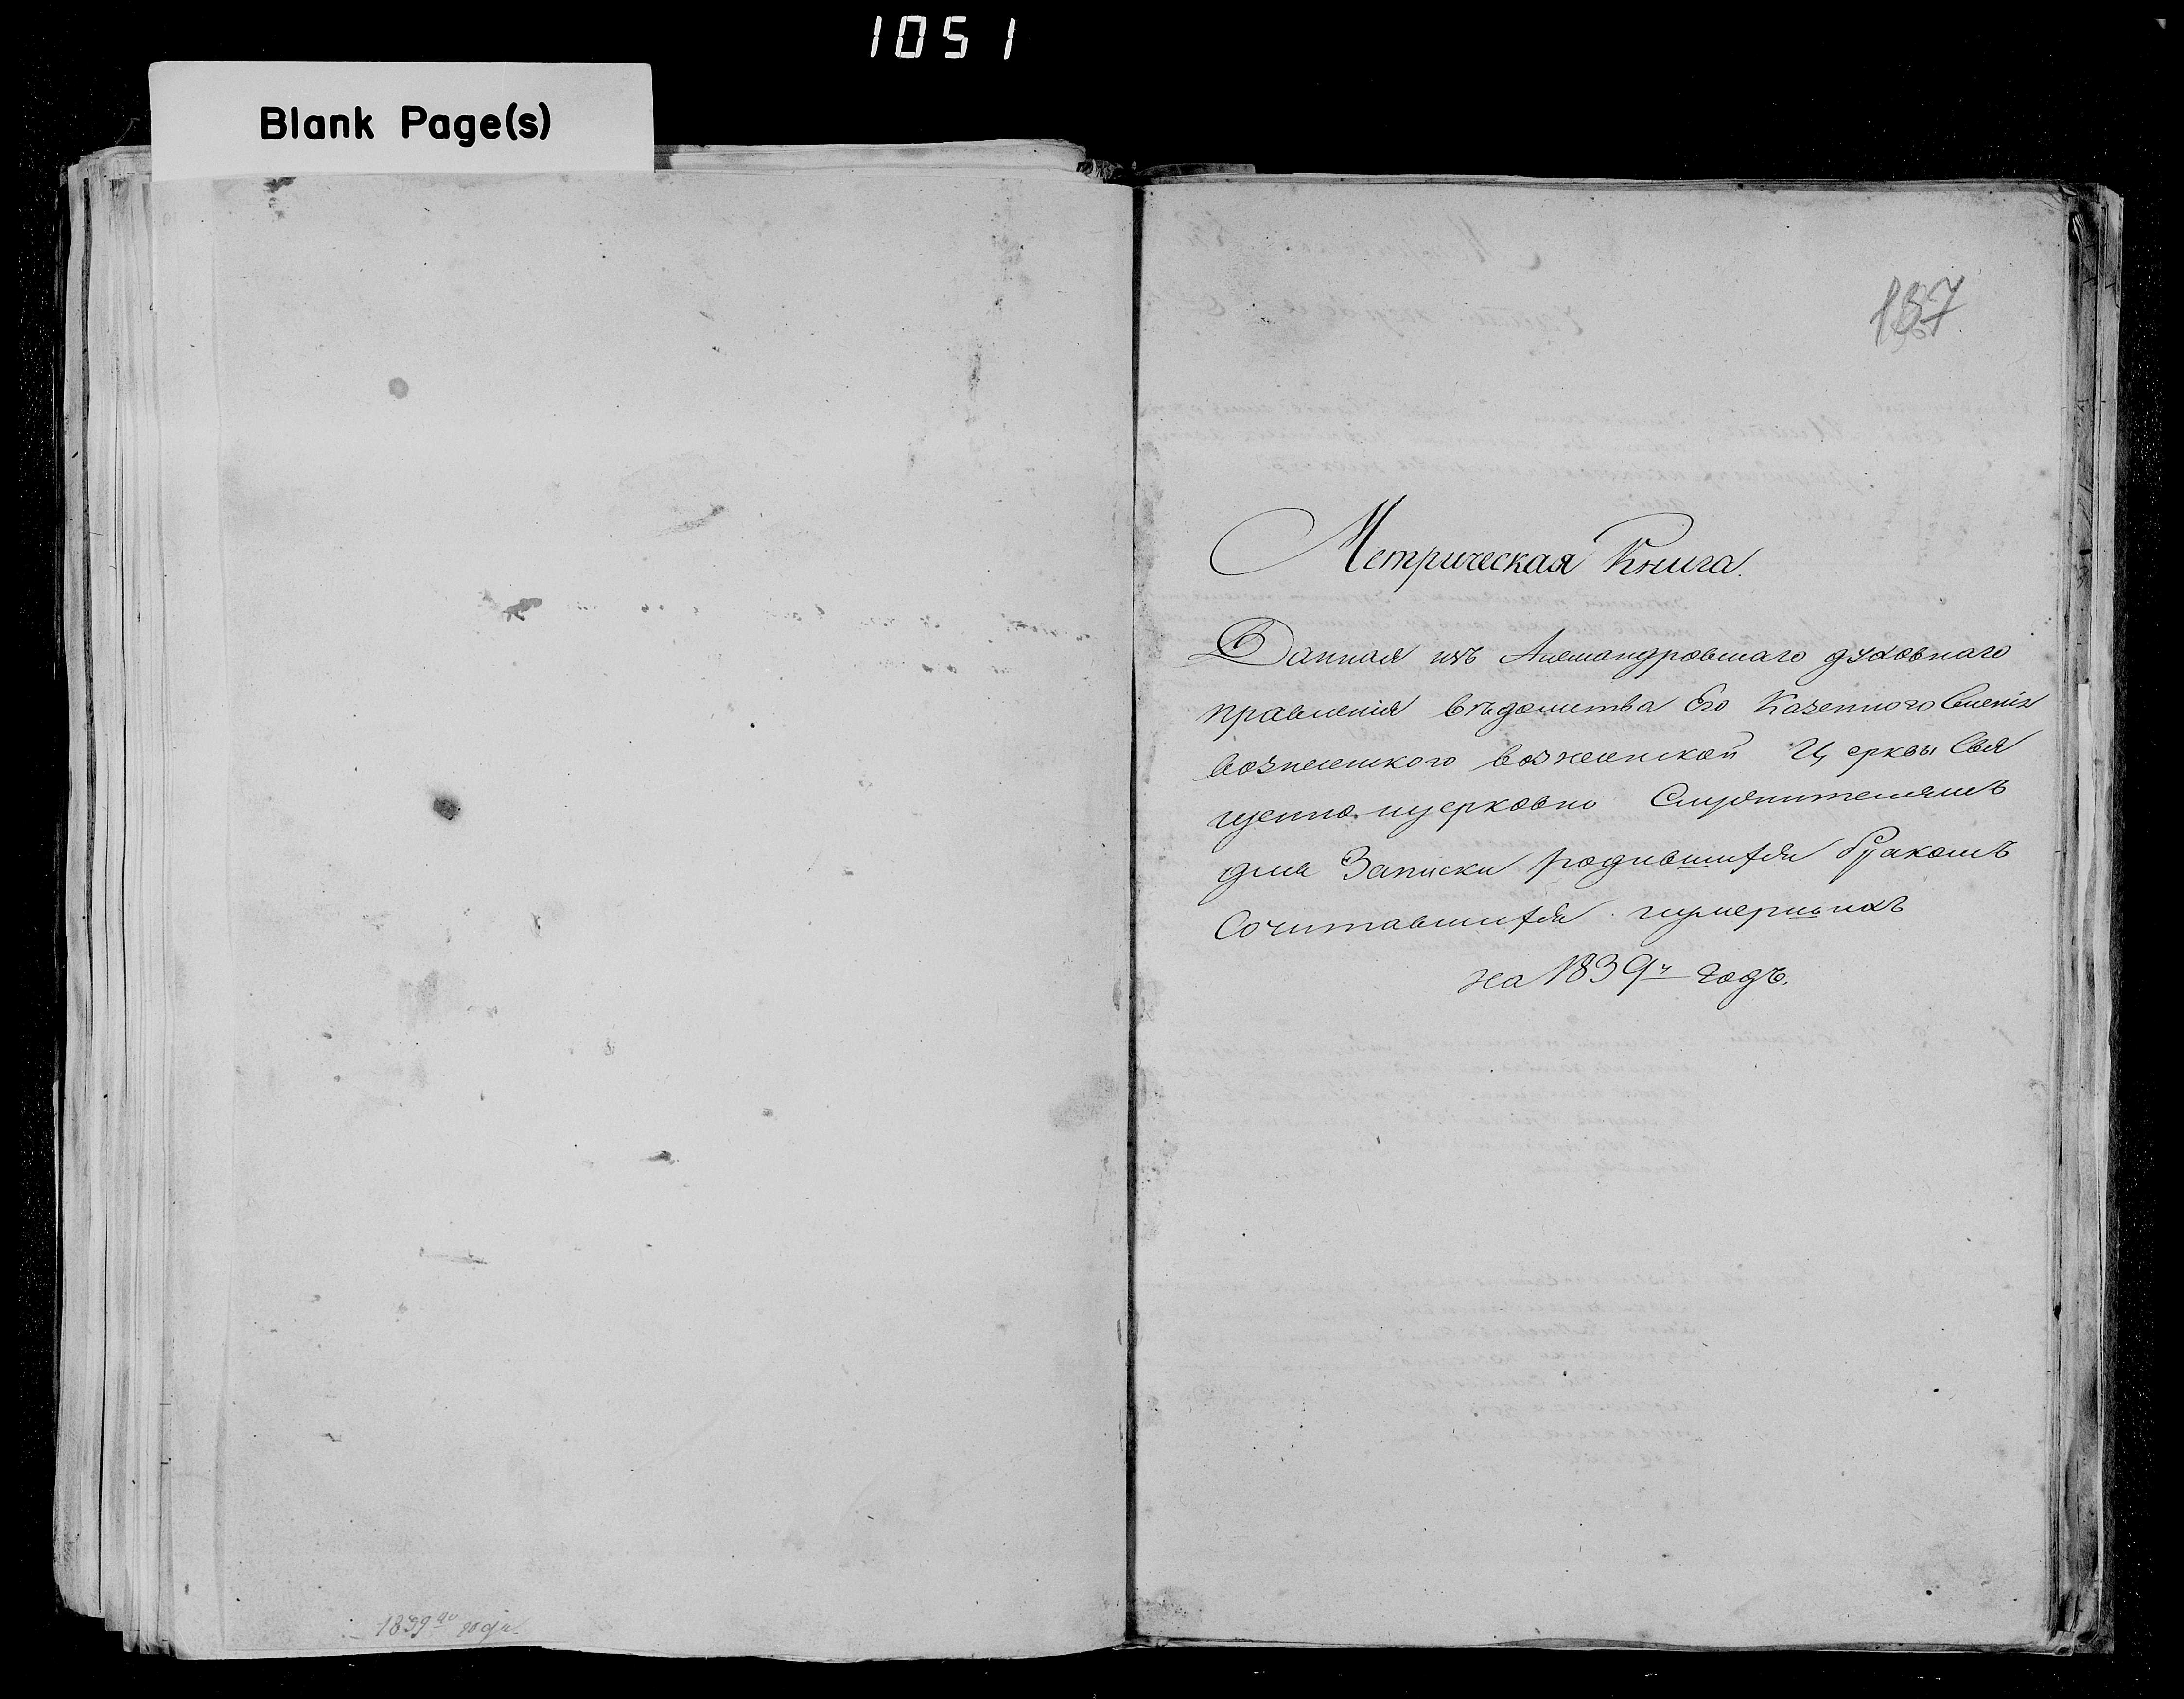 1051
Blank Page(s)
187
Метрическая Книга.
Данная изъ Александровскаго духовнаго
правленія вѣдомства Его Казенного Селенія
вознесенского вознесенской Церквы Свя
щенно церковно Служителямъ
для Записки родившихся бракомъ
Сочитавшихся иумершихъ
на 1839й годъ.
1839го года.